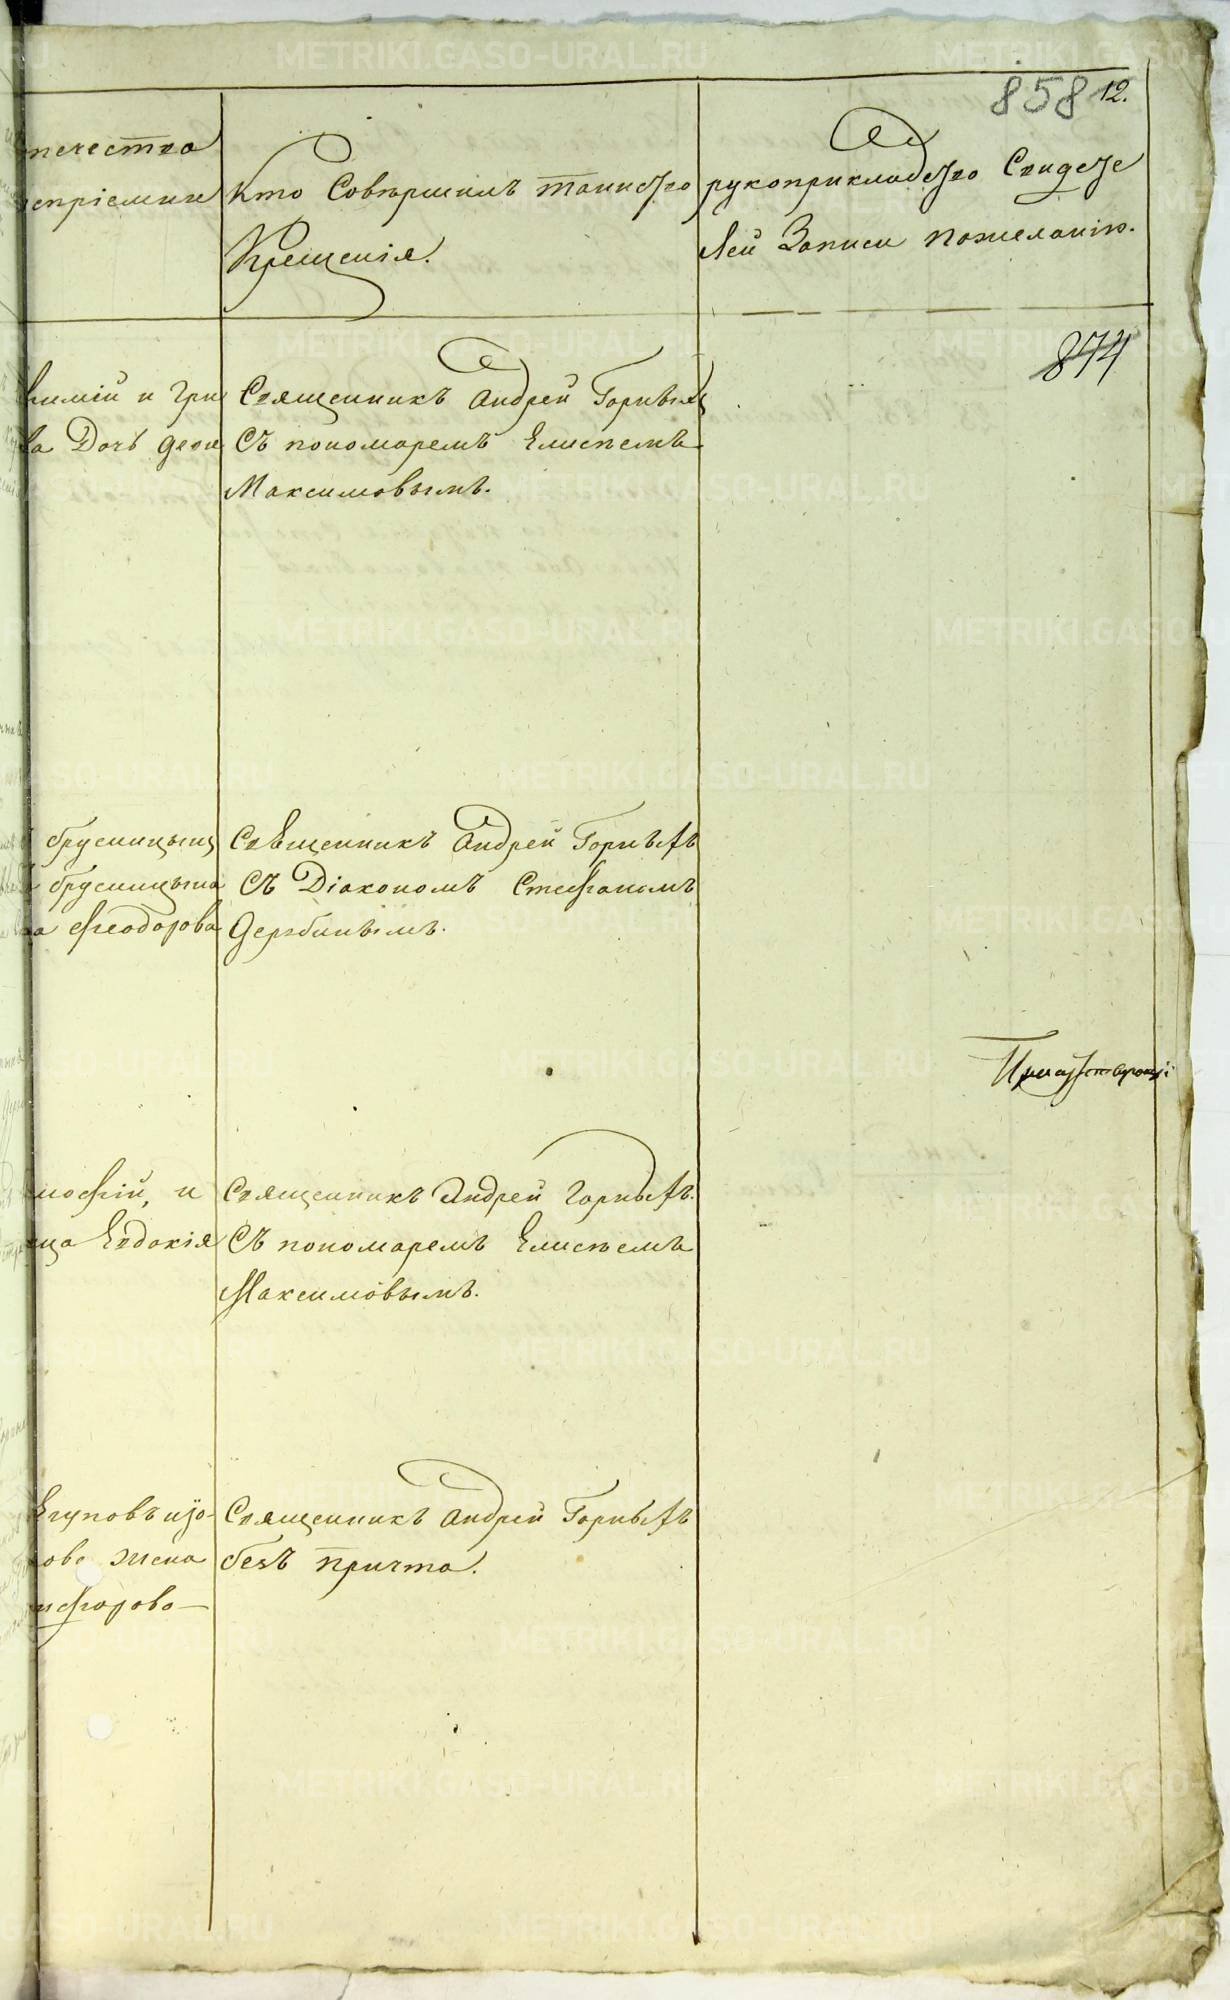 858 12.
отечества
воспріемник
Кто Совершилъ таинство
Крещенія.
рукоприкладство Свидете
лей Записи пожеланію.
874
фимій и Гри
ва Дочь деви
Священникъ Андрей Горныхъ
Съ пономаремъ Елисеемъ
Максимовымъ.
брусницынъ
брусницына
ва Феодорова
Священникъ Андрей Горныхъ
Съ Діакономъ Стефаномъ
Дерябинымъ.
мофій, и
ица Евдокія
Священникъ Андрей Горныхъ.
Съ пономаремъ Елисеемъ
Максимовымъ.
Егуповъ
ова жена
Священникъ Андрей Горныхъ
безъ причта.
METRIKI.GASO-URAL.RU